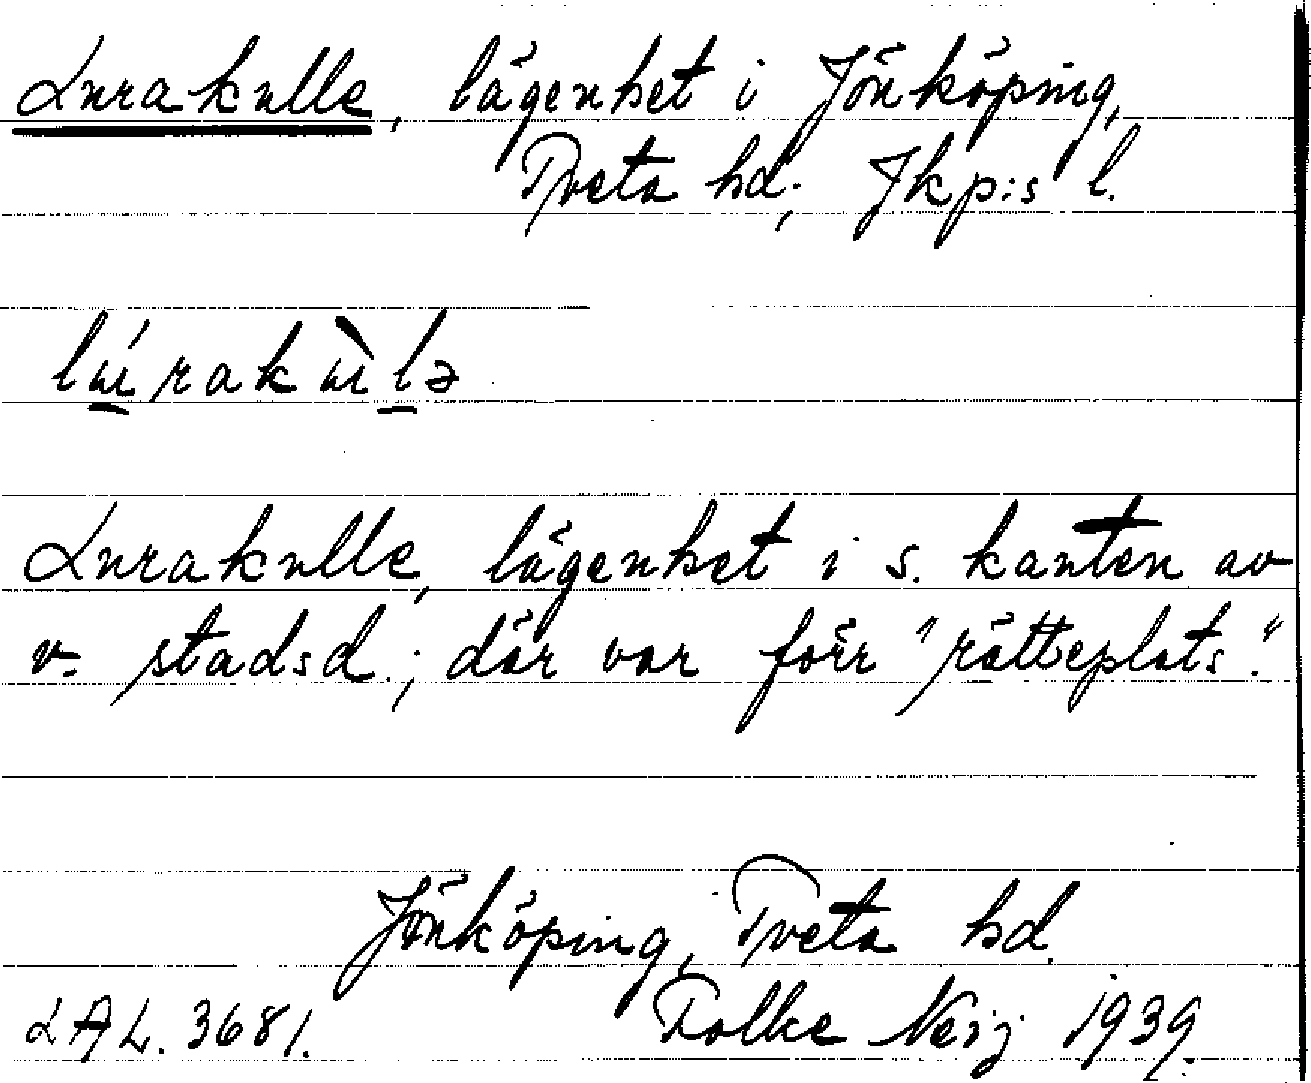 Lurakulle, lägenhet i Jönköping,
Tveta hd; Jkp:s l.
lɯ́rakɯ̀lə
Lurakulle, lägenhet i s. kanten av
v. stadsd.; där var förr "rätteplats."
Jönköping, Tveta hd.
LAL. 3681. Folke Neij 1939.